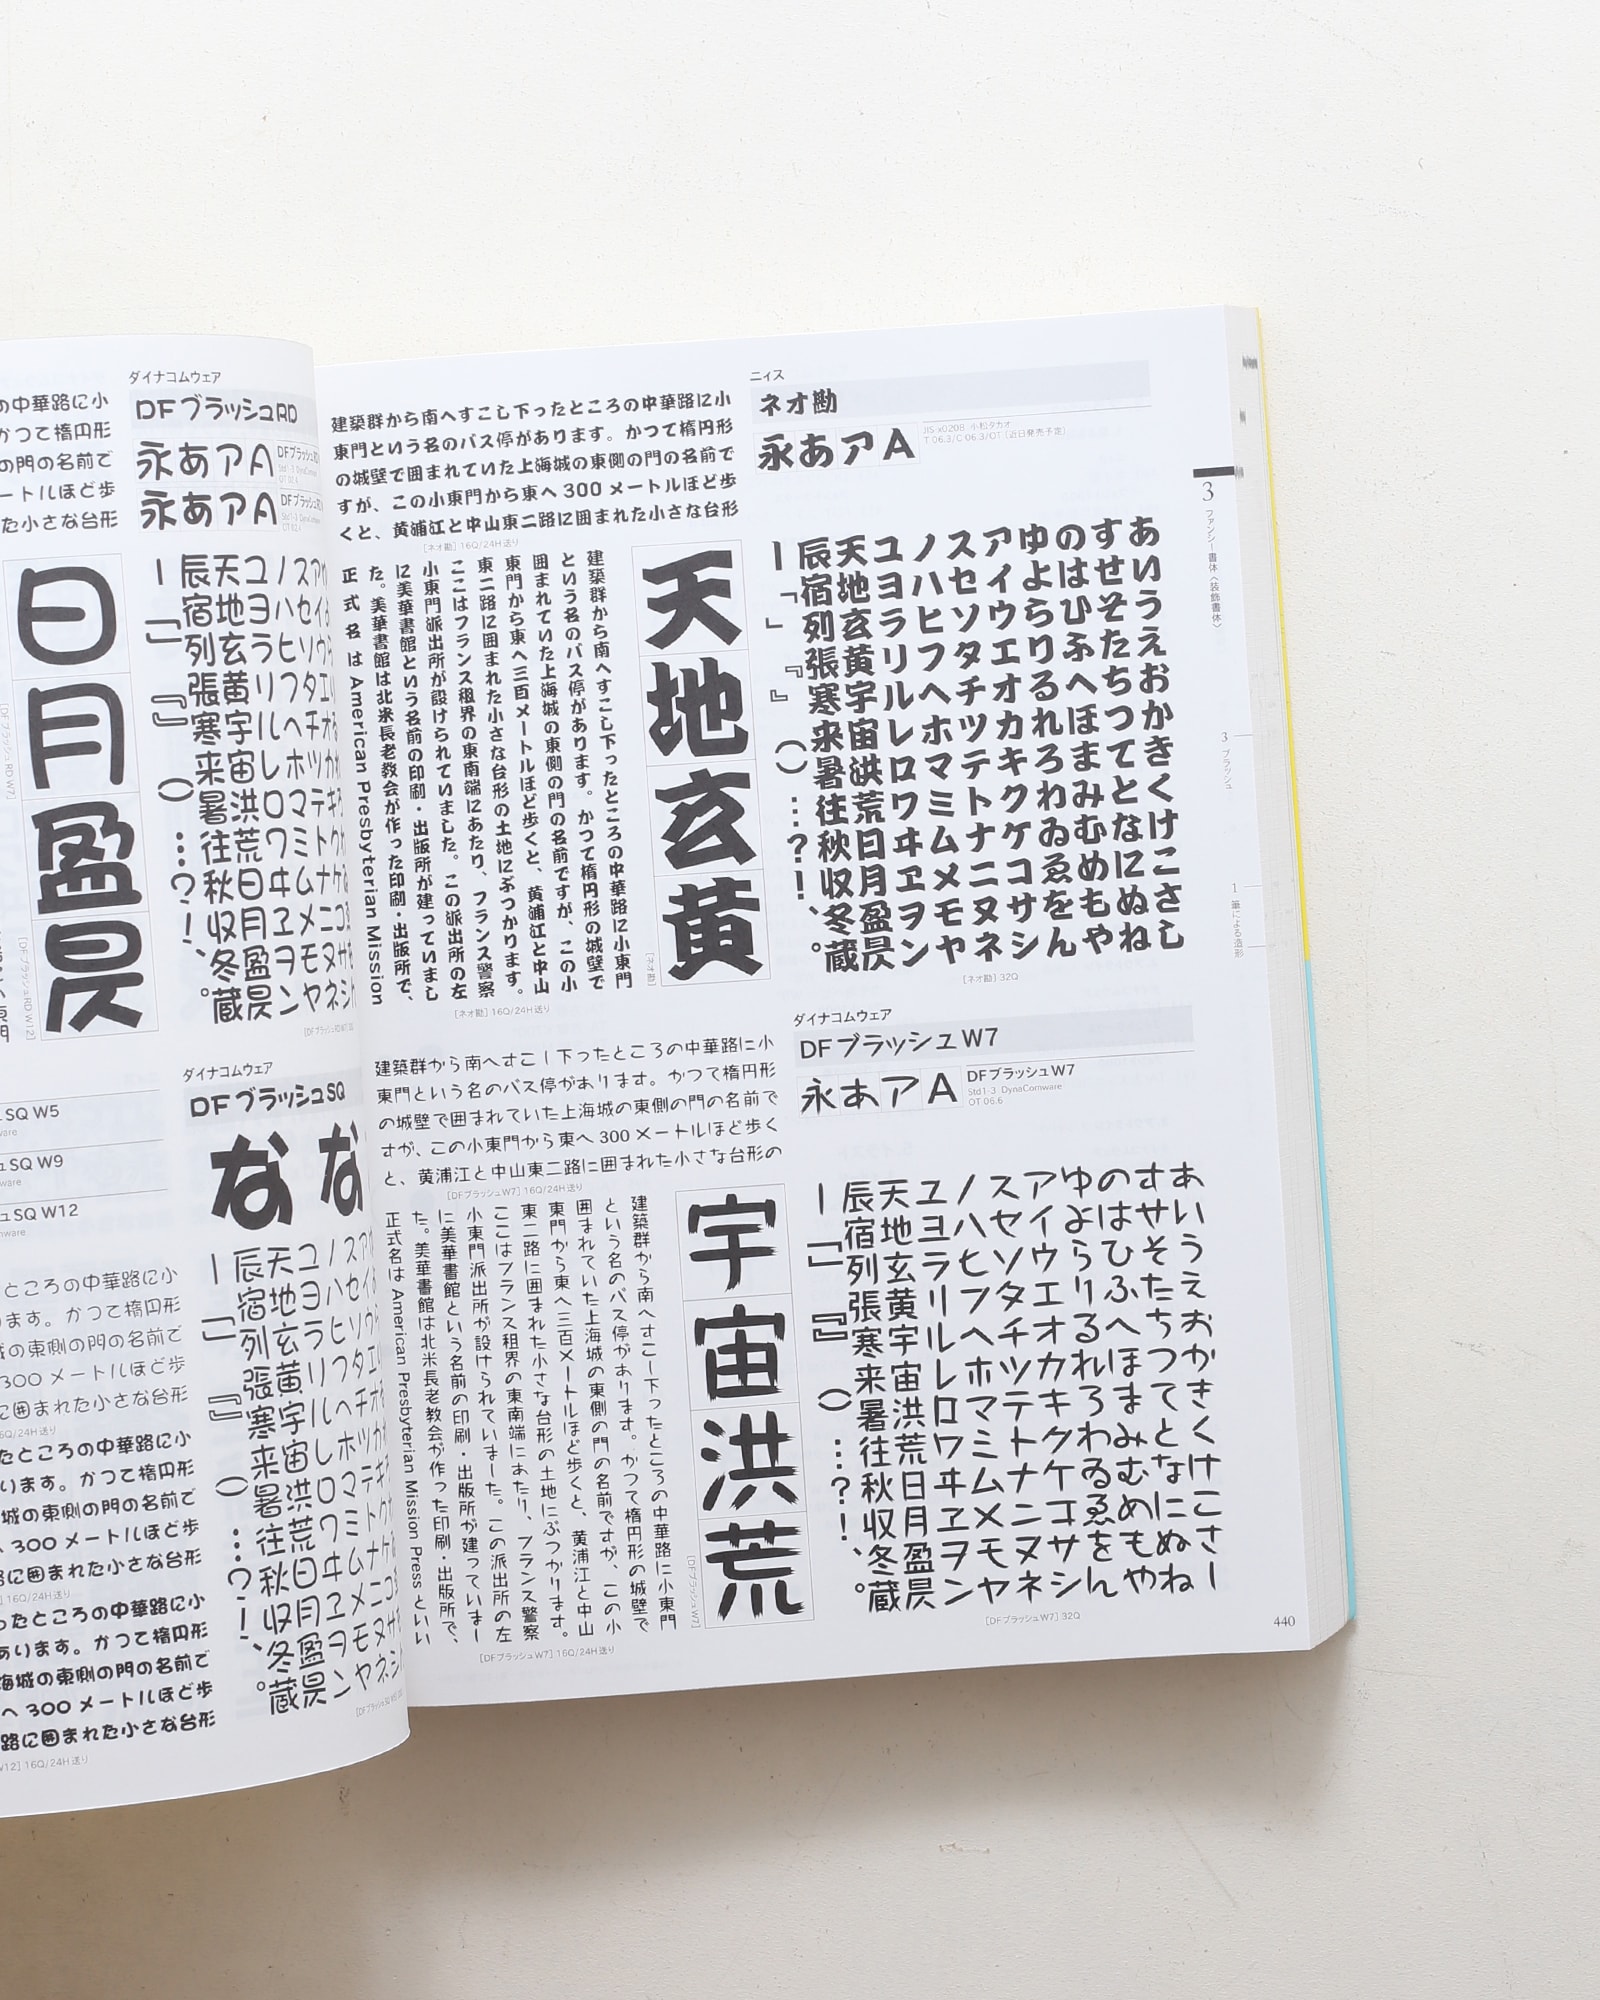 ニィス
ネオ勘
永あアA
JIS-x0208 小松タカオ
T 06.3/C 06.3/OT〔近日発売予定〕
建築群から南へすこし下ったところの中華路に小
東門という名のバス停があります。かつて楕円形
の城壁で囲まれていた上海城の東側の門の名前で
すが、この小東門から東へ 300 メートルほど歩
くと、黄浦江と中山東二路に囲まれた小さな台形
[ネオ勘] 16Q/24H 送り
あいうえおかきくけこさし
すせそたちつてとなにぬね
のはひふへほまみむめもや
ゆよらりるれろわゐゑをん
アイウエオカキクケコサシ
スセソタチツテトナニヌネ
ノハヒフヘホマミムメモヤ
ユヨラリルレロワヰヱヲン
天地玄黄宇宙洪荒日月盈昃
辰宿列張寒来暑往秋収冬蔵
ー「」『』()…?!、。
[ネオ勘] 32Q
天地玄黄
[ネオ勘]
建築群から南へすこし下ったところの中華路に小東門
という名のバス停があります。かつて楕円形の城壁で
囲まれていた上海城の東側の門の名前ですが、この小
東門から東へ三百メートルほど歩くと、黄浦江と中山
東二路に囲まれた小さな台形の土地にぶつかります。
ここはフランス租界の東南端にあたり、フランス警察
小東門派出所が設けられていました。この派出所の左
に美華書館という名前の印刷・出版所が建っていまし
た。美華書館は北米長老教会が作った印刷・出版所で、
正式名は American Presbyterian Mission
[ネオ勘] 16Q/24H 送り
ダイナコムウェア
DFブラッシュW7
永あアA
DFブラッシュW7
Std1-3 DynaComware
OT 06.6
建築群から南へすこし下ったところの中華路に小
東門という名のバス停があります。かつて楕円形
の城壁で囲まれていた上海城の東側の門の名前で
すが、この小東門から東へ 300 メートルほど歩く
と、黄浦江と中山東二路に囲まれた小さな台形の
[DFブラッシュW7] 16Q/24H 送り
あいうえおかきくけこさし
すせそたちつてとなにぬね
のはひふへほまみむめもや
ゆよらりるれろわゐゑをん
アイウエオカキクケコサシ
スセソタチツテトナニヌネ
ノハヒフヘホマミムメモヤ
ユヨラリルレロワヰヱヲン
天地玄黄宇宙洪荒日月盈昃
辰宿列張寒来暑往秋収冬蔵
ー「」『』()…?!、。
[DFブラッシュW7] 32Q
宇宙洪荒
[DFブラッシュW7]
建築群から南へすこし下ったところの中華路に小東門
という名のバス停があります。かつて楕円形の城壁で
囲まれていた上海城の東側の門の名前ですが、この小
東門から東へ三百メートルほど歩くと、黄浦江と中山
東二路に囲まれた小さな台形の土地にぶつかります。
ここはフランス租界の東南端にあたり、フランス警察
小東門派出所が設けられていました。この派出所の左
に美華書館という名前の印刷・出版所が建っていまし
た。美華書館は北米長老教会が作った印刷・出版所で、
正式名は American Presbyterian Mission Press といい
[DFブラッシュW7] 16Q/24H 送り
3
ファンシー書体〈装飾書体〉
3
ブラッシュ
1
筆による造形
440
ダイナコムウェア
DFブラッシュRD
永あアA
永あアA
の中華路に小
かつて楕円形
の門の名前で
ートルほど歩
た小さな台形
日月盈昃
[DFブラッシュRD W7]
[DFブラッシュRD W12]
ノハヒフヘホマミムメモヤ
ユヨラリルレロワヰヱヲン
天地玄黄宇宙洪荒日月盈昃
辰宿列張寒来暑往秋収冬蔵
ー「」『』()…?!、。
ダイナコムウェア
DFブラッシュSQ
な
SQ W5
SQ W9
SQ W12
ノハヒフヘホマミムメモヤ
ユヨラリルレロワヰヱヲン
天地玄黄宇宙洪荒日月盈昃
辰宿列張寒来暑往秋収冬蔵
ー「」『』()…?!、。
ところの中華路に小
ます。かつて楕円形
城の東側の門の名前で
300 メートルほど歩
に囲まれた小さな台形
6Q/24H 送り
たところの中華路に小
ります。かつて楕円形
城の東側の門の名前で
へ 300 メートルほど歩
路に囲まれた小さな台形
16Q/24H 送り
ったところの中華路に小
あります。かつて楕円形
海城の東側の門の名前で
へ 300 メートルほど歩
路に囲まれた小さな台形
W12] 16Q/24H 送り